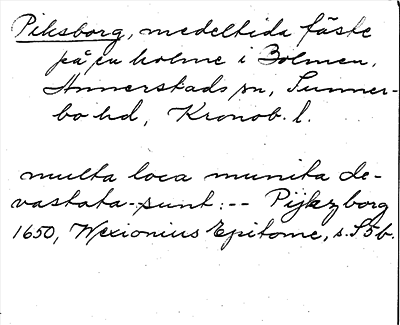 Piksborg, medeltida fäste
på en holme i Bolmen,
Annerstads sn, Sunner-
bo hd, Kronob. l.
multa loca munita de-
vastata sunt: -- Pijkzborg
1650, Wexionius Epitome, s. S5b.